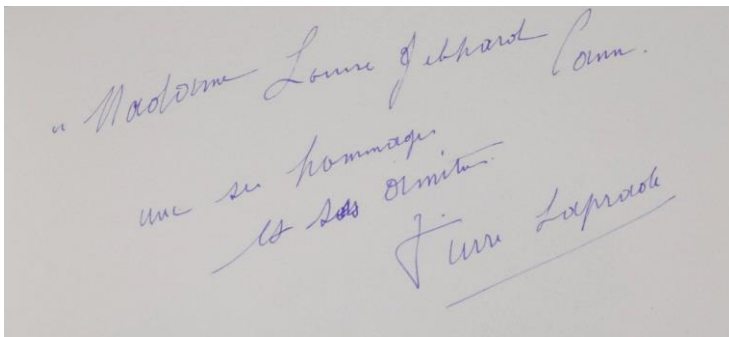 a Madame Louise Gebhard Cann.
avec ses hommages
et ses amitiés.
Pierre Laprade